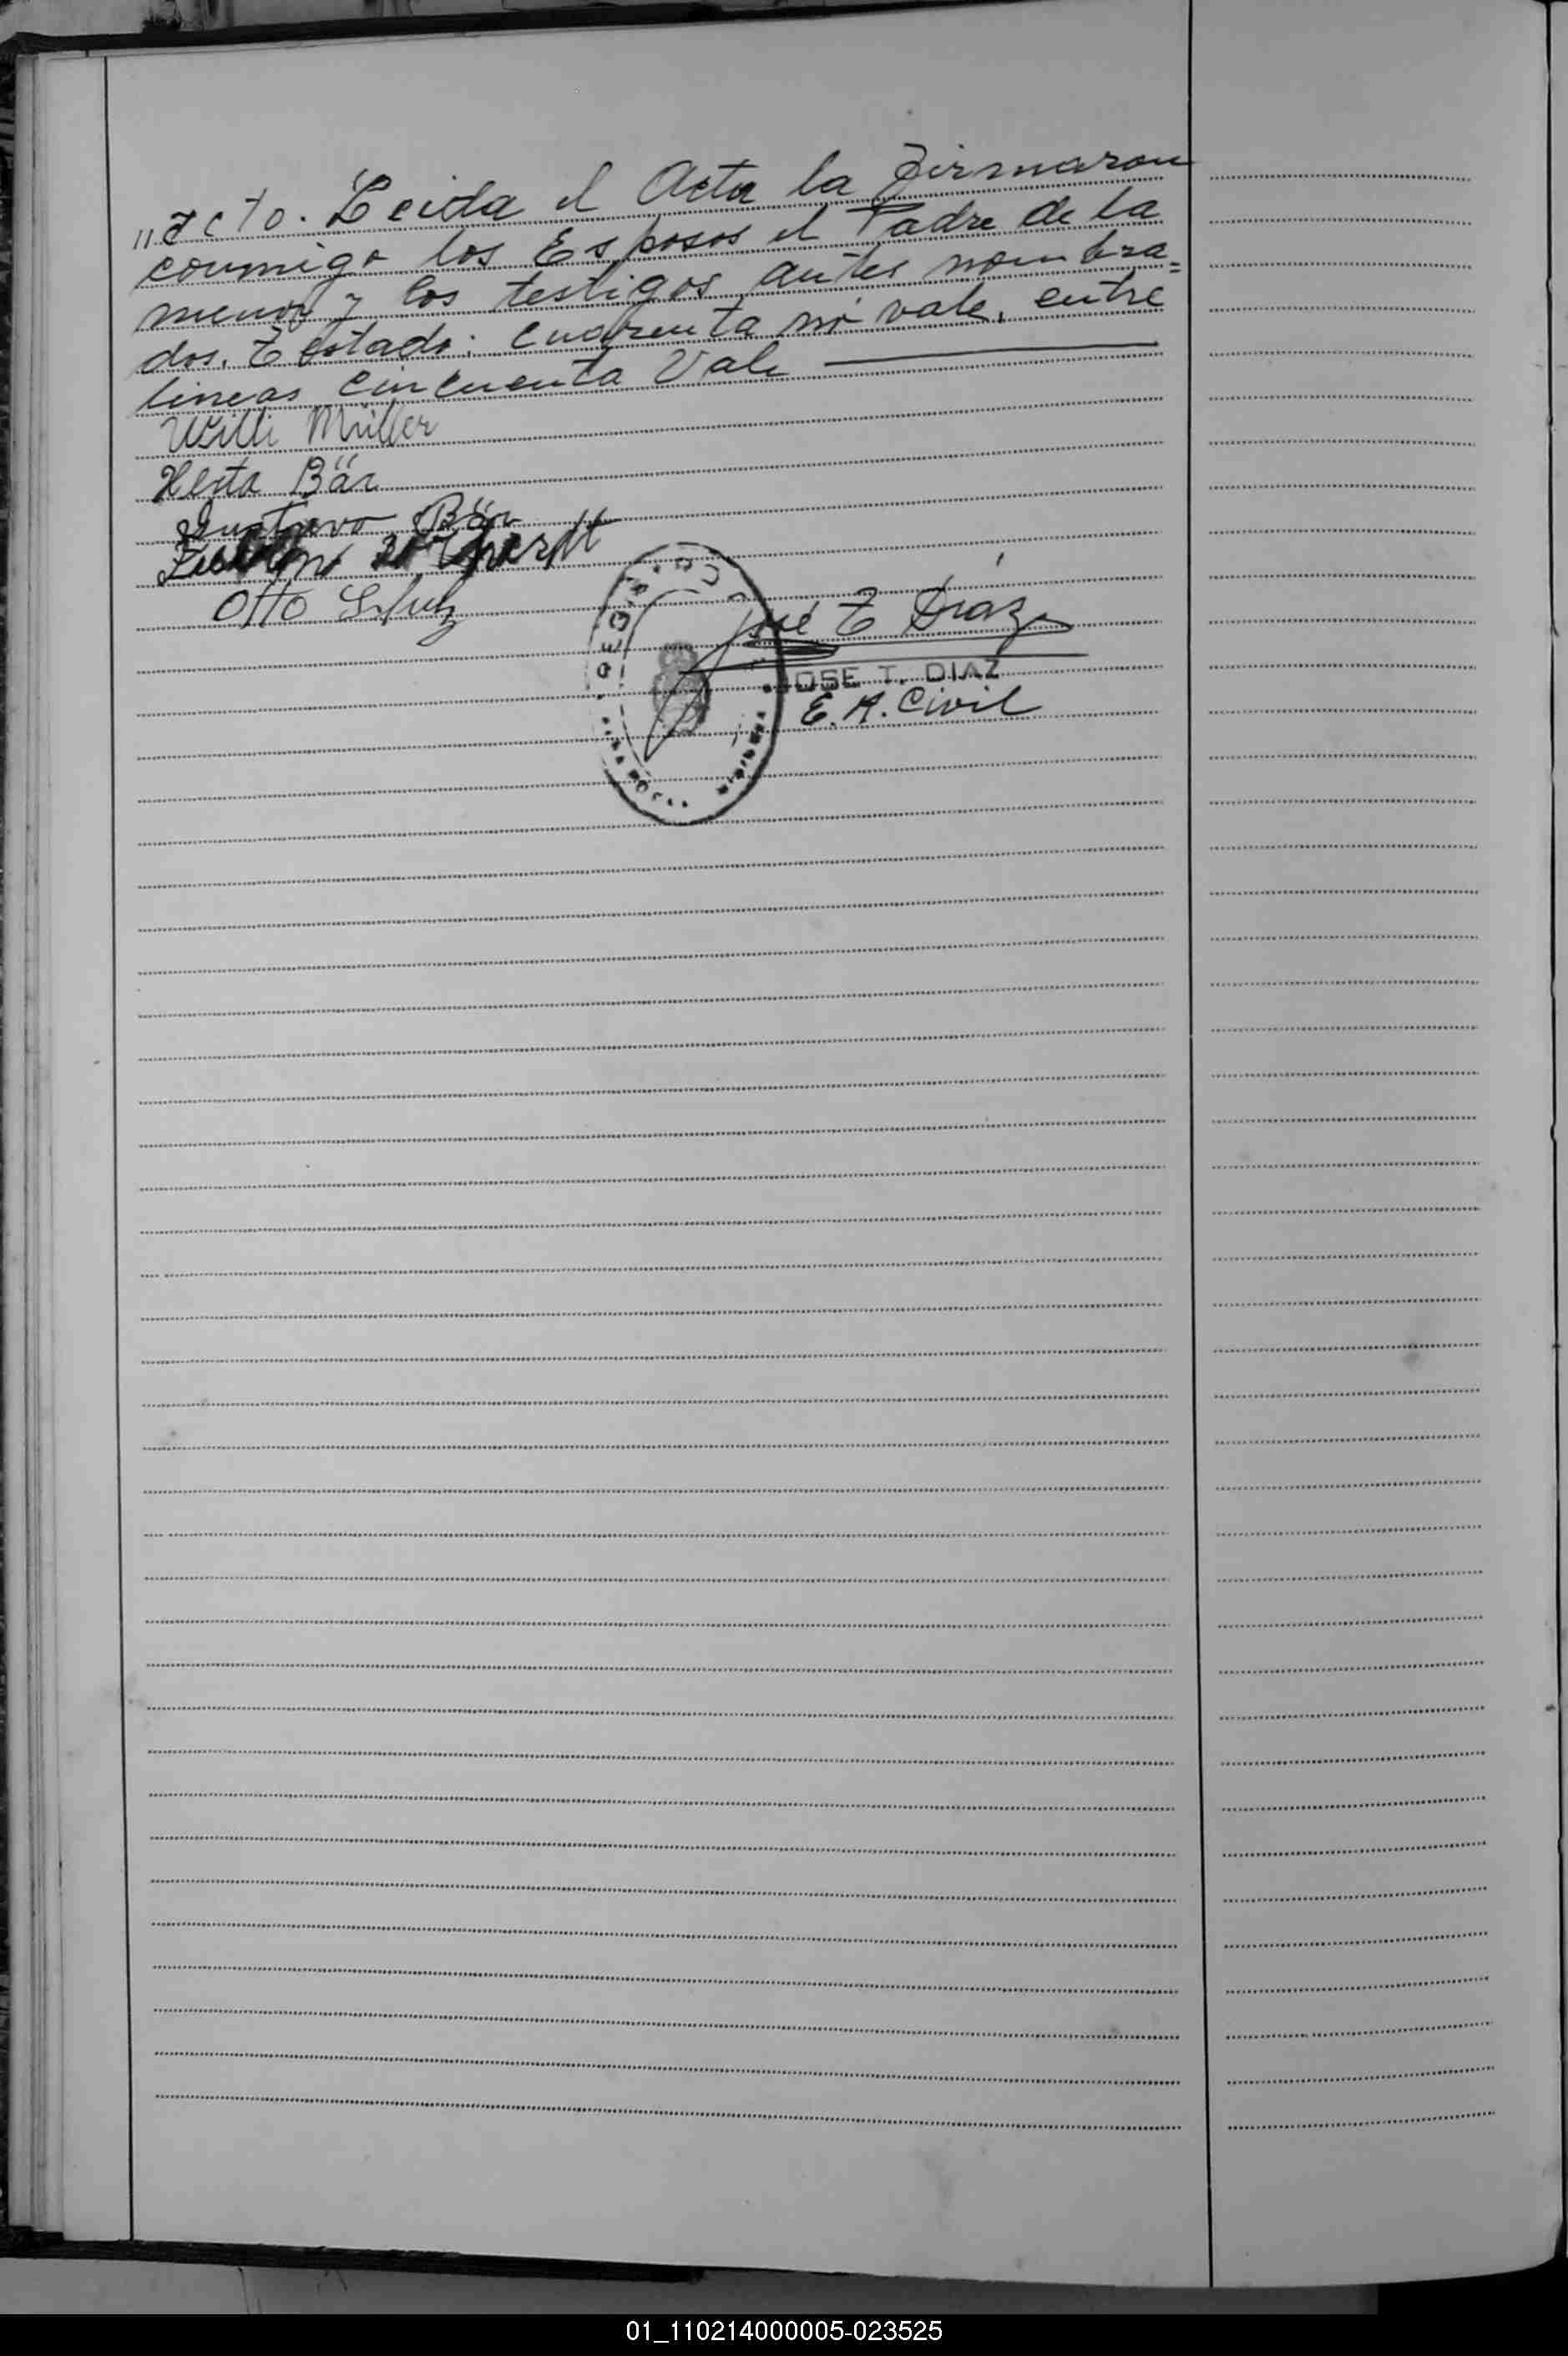 "acto. Leida el Acta la Firmaron
conmigo los Esposos el Padre de la
menor y los testigos antes nombra=
dos. Testado: cuarenta no vale, entre
lineas cincuenta Vale
Willi Müller
Herta Bär
Gustavo Bär
Otto Schulz
José T Diaz
JOSE T. DIAZ
E. R. Civil
01_110214000005-023525